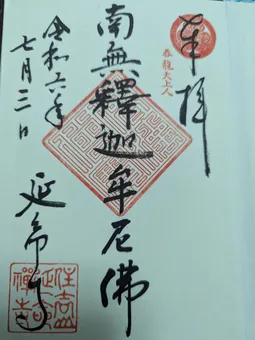 奉拝
南無釋迦牟尼佛
令和六年
七月三日
延命寺